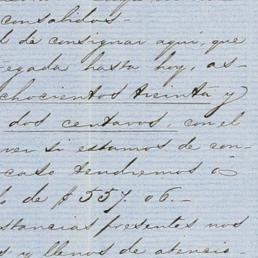 consolidados.-
de consignar aquí, que
egada hasta hoy, as-
chocientos treinta y
dos centavos, con el
ver si estamos de con-
caso tendremos
de $557.06.-
stancias presentes nos
s y llenos de atencio-